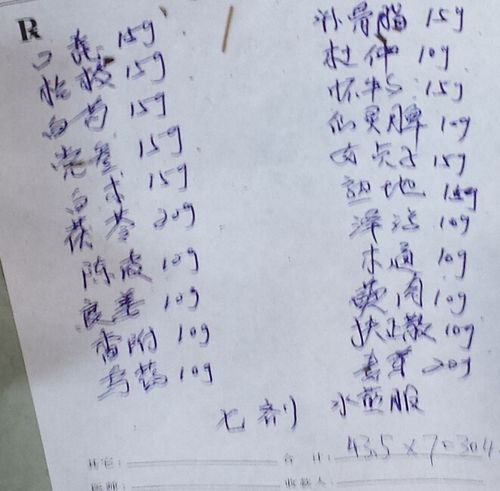 R
口芪 15g
桂枝 15g
白芍 15g
党参 15g
白术 15g
茯苓 20g
陈皮 10g
良姜 10g
香附 10g
乌药 10g
补骨脂 15g
杜仲 10g
怀牛 15g
仙灵脾 10g
女贞子 15g
熟地 15g
泽泻 10g
木通 10g
萸肉 10g
10g
20g
七剂 水煎服
合 计: 43.5×7=304.